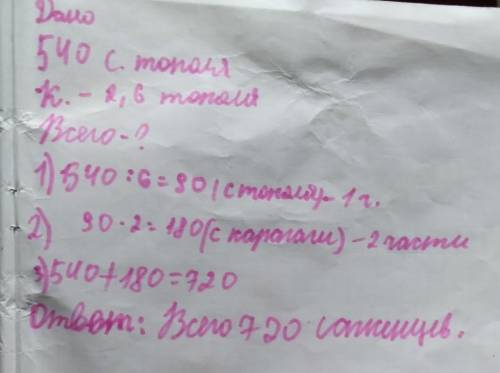 Дано
540 с. тополя
К. - 2, 6 тополя
Всего-?
1) 540 : 6 = 90 (с тополя) - 1 ч.
2) 90 · 2 = 180 (с карагали) - 2 части
3) 540 + 180 = 720
Ответ: Всего 720 саженцев.